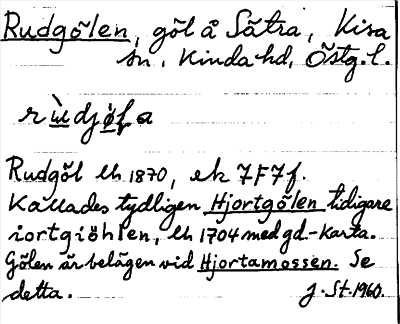 Rudgölen, göl å Sätra, Kisa
sn, Kinda hd, Östg. l.
Rudgöl lh 1870, ek 7F7f.
Kallades tydligen Hjortgölen tidigare
iortgiöhlen, lh 1704 med gd.-karta.
Gölen är belägen vid Hjortamossen. Se
detta. J. St. 1960.